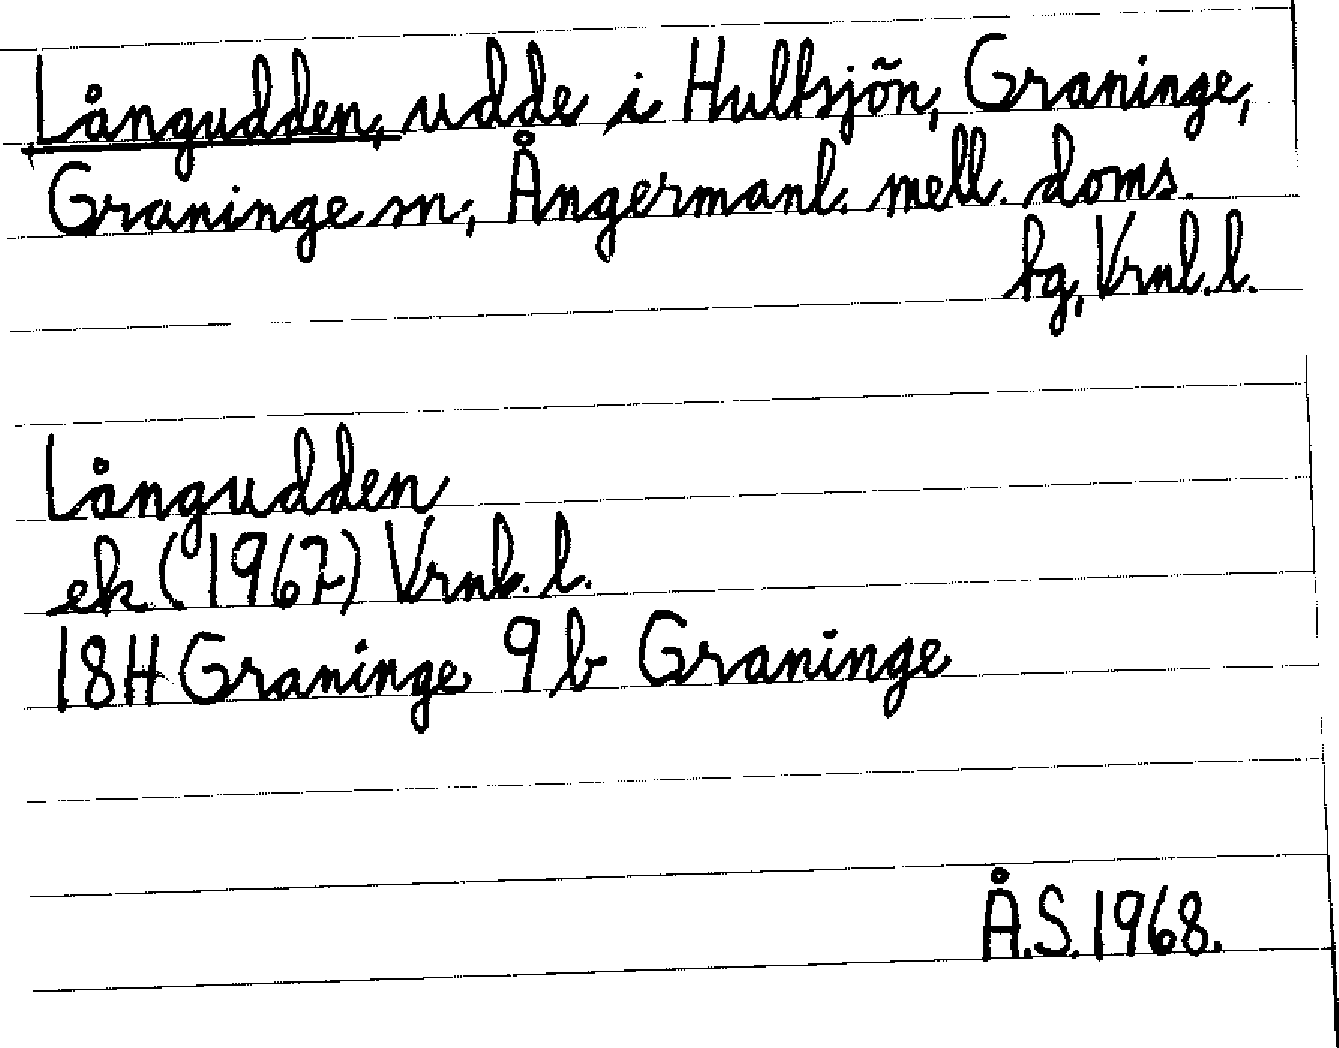 Långudden, udde i Hultsjön, Graninge,
Graninge sn, Ångermanl. mell. doms.
bg, Vrnl. l.
Långudden
ek (1967) Vrnl. l.
18H Graninge 9b Graninge
Å.S. 1968.